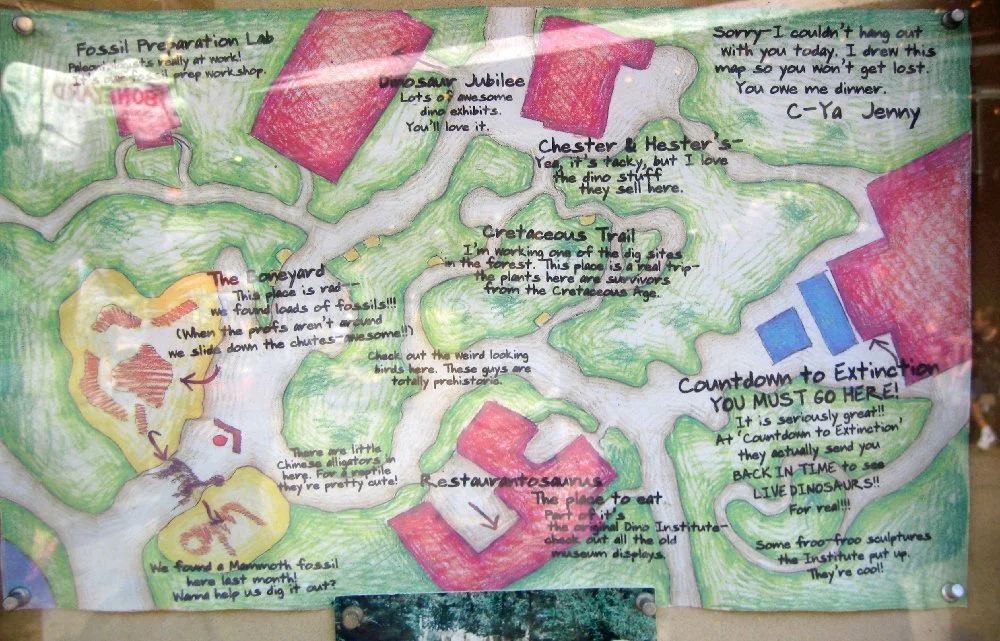 Fossil Preparation Lab
really at work!
prep workshop.
BONEYARD
Dinosaur Jubilee
Lots of awesome
dino exhibits.
You'll love it.
Chester & Hester's-
Yea, it's tacky, but I love
the dino stuff
they sell here.
Sorry-I couldn't hang out
with you today. I drew this
map so you won't get lost.
You owe me dinner.
C-Ya Jenny
Cretaceous Trail
I'm working one of the dig sites
in the forest. This place is a real trip-
the plants here are survivors
from the Cretaceous Age.
The Boneyard
This place is rad--
we found loads of fossils!!!
(When the profs aren't around
we slide down the chutes-awesome!!)
Check out the weird looking
birds here. These guys are
totally prehistoric.
Countdown to Extinction
YOU MUST GO HERE!
It is seriously great!!
At 'Countdown to Extinction'
they actually send you
BACK IN TIME to see
LIVE DINOSAURS!!
For real!!!
There are little
Chinese alligators in
here. For a reptile
they're pretty cute!
Restaurantosaurus
The place to eat.
Part of it's
the original Dino Institute-
check out all the old
museum displays.
Some froo-froo sculptures
the Institute put up.
They're cool!
We found a Mammoth fossil
here last month!
Wanna help us dig it out?